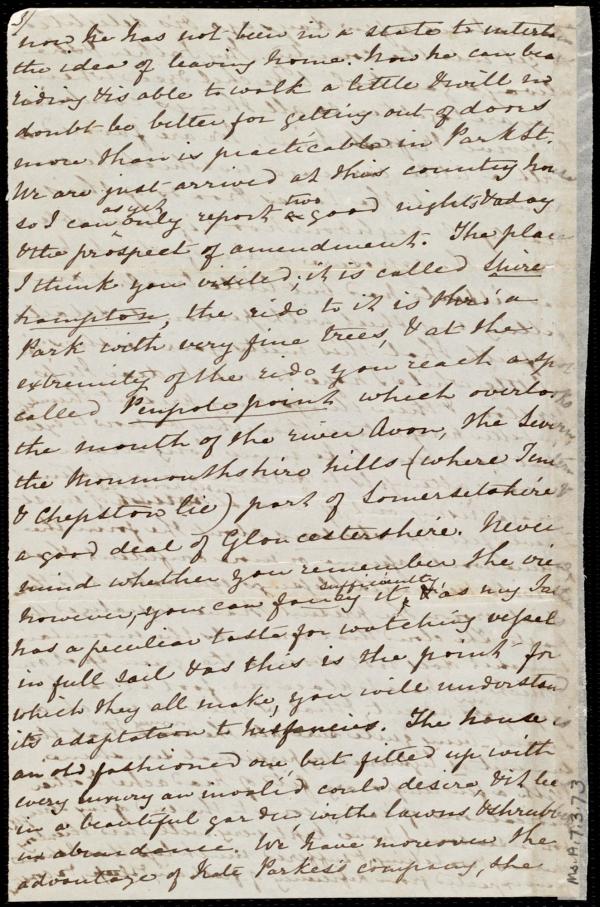 3)
now he has not been in a state to
the idea of leaving home. Now he can
riding & is able to walk a little & will no
doubt be better for getting out of doors
more than is practicable in Park St.
We are just arrived at this country
so I can only report two good nights & a day
as yet
& the prospect of amendment. The
I think you visited; it is called Shire
hampton, the ride to it is thro' a
Park with very fine trees, & at the
extremity of the ride you reach a
called Penpole point which
the mouth of the river Avon, the
the Monmouthshire hills (where
& Chepstow lie) part of Somersetshire
a good deal of Gloucestershire. Never
mind whether you remember the
however, you can fancy it sufficiently, & as my
has a peculiar taste for watching vessels
in full sail & as this is the point for
which they all make, you will understand
its adaptation to his fancies. The house is
an old fashioned one but fitted up with
every luxury an invalid could desire, &
in a beautiful garden, with lawns & shrubs
in abundance. We have moreover the
advantage of Kate Parkes's company, she
Ms.A.7.3.73